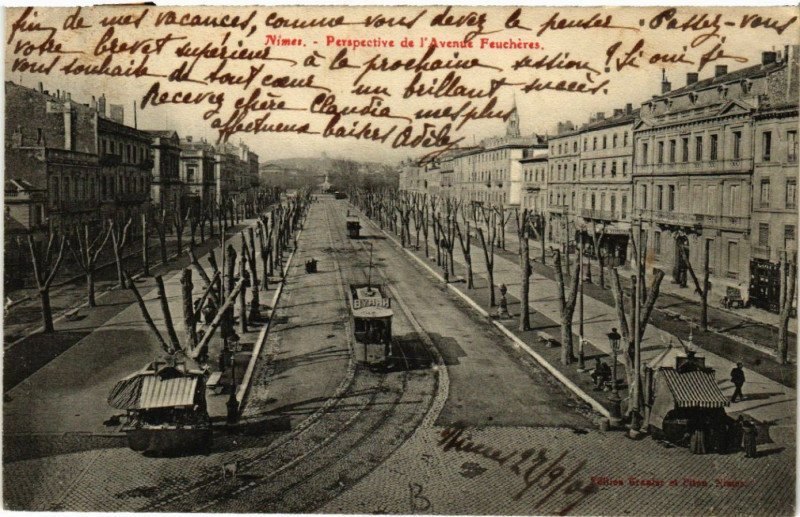 fin de mes vacances, comme vous devez le penser. Passez-vous
Nimes. - Perspective de l'Avenue Feuchères.
votre brevet supérieur à la prochaine session? Si oui je
vous souhaite de tout cœur un brillant succès.
Recevez chère Claudia mes plus
affectueux baisers Adèle
BYRRH
Nimes 27/9/09
Edition Granier et Nimes.
B